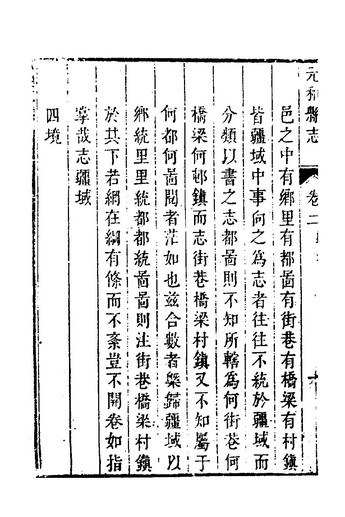 元和縣志
卷二
邑之中有鄉里有都啚有街巷有橋梁有村鎮
皆疆域中事向之為志者往往不統於疆域而
分類以書之志都啚則不知所轄為何街巷何
橋梁何邨鎮而志街巷橋梁村鎮又不知屬于
何都何啚閱者茫如也兹合數者槩歸疆域以
鄉統里里統都都統啚啚則注街巷橋梁村鎮
於其下若網在綱有條而不紊豈不開卷如指
掌哉志疆域
四境